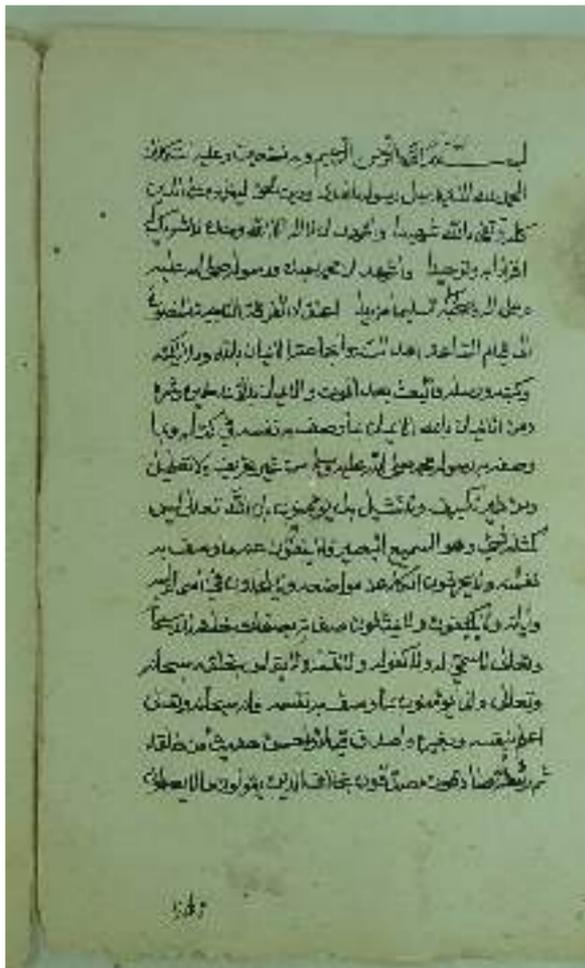 بسم الله الرحمن الرحيم وبه نستعين وعليه التكلان
الحمد لله الذي ارسل رسوله بالهدى ودين الحق ليظهره على الدين
كله وكفى بالله شهيدا واشهد ان لا اله الا الله وحده لا شريك له
اقرارا به وتوحيدا واشهد ان محمدا عبده ورسوله صلى الله عليه
وعلى اله وصحبه وسلم تسليما مزيدا اعتقاد الفرقة الناجية المنصورة
الى قيام الساعة اهل السنة والجماعة الايمان بالله وملائكته
وكتبه ورسله والبعث بعد الموت والايمان بالقدر خيره وشره
ومن الايمان بالله الايمان بما وصف به نفسه في كتابه وبما
وصفه به رسوله محمد صلى الله عليه وسلم من غير تحريف ولا تعطيل
ومن غير تكييف ولا تمثيل بل يؤمنون بان الله تعالى ليس
كمثله شيء وهو السميع البصير فلا ينفون عنه ما وصف به
نفسه ولا يحرفون الكلم عن مواضعه ولا يلحدون في اسماء الله
واياته ولا يكيفون ولا يمثلون صفاته بصفات خلقه لانه سبحانه
وتعالى لا سمي له ولا كفو له ولا ند له ولا يقاس بخلقه سبحانه
وتعالى يؤمنون بما وصف به نفسه فانه سبحانه وتعالى
اعلم بنفسه وبغيره واصدق قيلا واحسن حديثا من خلقه
ثم رسله صادقون مصدقون بخلاف الذين يقولون ما لا يعلمون